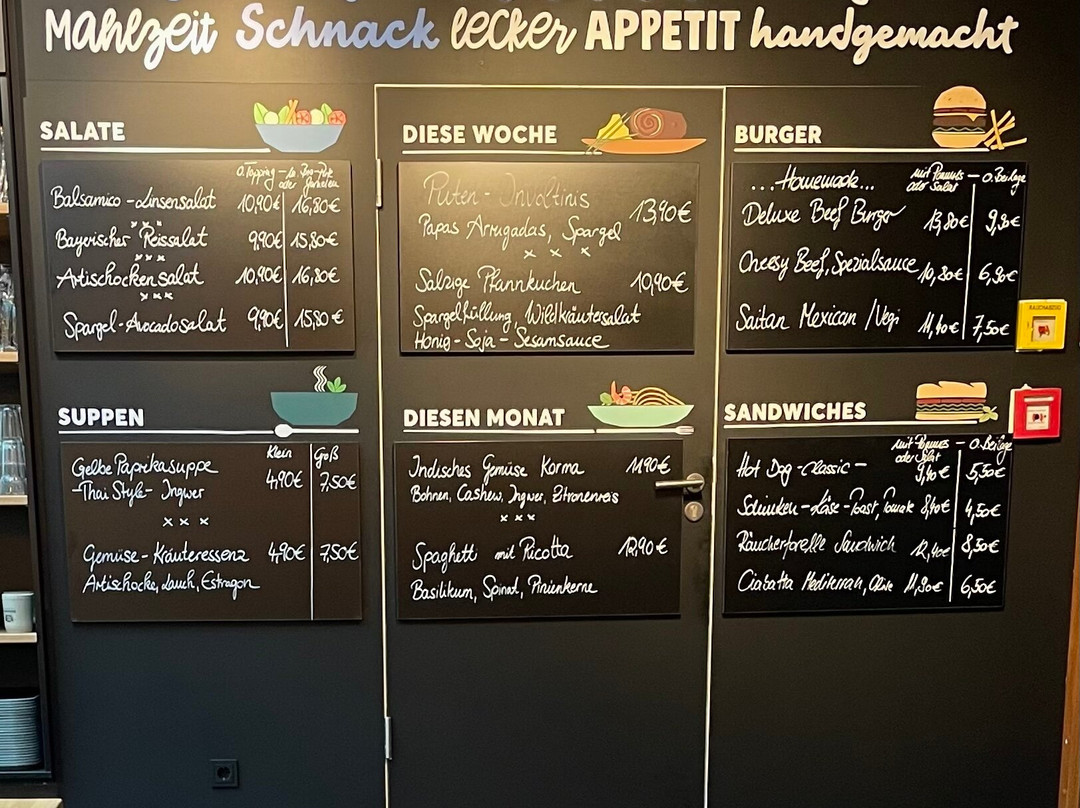 Mahlzeit Schnack lecker APPETIT handgemacht
SALATE
o. Topping
oder Garnelen
Balsamico-Linsensalat 10,90€ 16,80€
x x x
Bayerischer Reissalat 9,90€ 15,80€
x x x
Artischockensalat 10,90€ 16,80€
x x x
Spargel-Avocadosalat 9,90€ 15,80€
SUPPEN
Klein Groß
Gelbe Paprikasuppe 4,90€ 7,50€
-Thai Style- Ingwer
x x x
Gemüse-Kräuteressenz 4,90€ 7,50€
Artischocke, Lauch, Estragon
DIESE WOCHE
Puten-Involtinis 13,90€
Papas Arrugadas, Spargel
x x x
Salzige Pfannkuchen 10,90€
Spargelfüllung, Wildkräutersalat
Honig-Soja-Sesamsauce
DIESEN MONAT
Indisches Gemüse Korma 11,90€
Bohnen, Cashew, Ingwer, Zitronenreis
x x x
Spaghetti mit Ricotta 12,90€
Basilikum, Spinat, Pinienkerne
BURGER
...Homemade... mit Pommes - o. Beilage
oder Salat
Deluxe Beef Burger 13,80€ 9,30€
Cheesy Beef, Spezialsauce 10,80€ 6,90€
Saitan Mexican /Vegi 11,40€ 7,50€
RAUCHABZUG
SANDWICHES
mit Pommes - o. Beilage
oder Salat
Hot Dog -classic- 9,40€ 5,50€
Schinken-Käse-Toast, Tomate 8,40€ 4,50€
Räucherforelle Sandwich 12,40€ 8,50€
Ciabatta Mediterran, Olive 11,30€ 6,50€